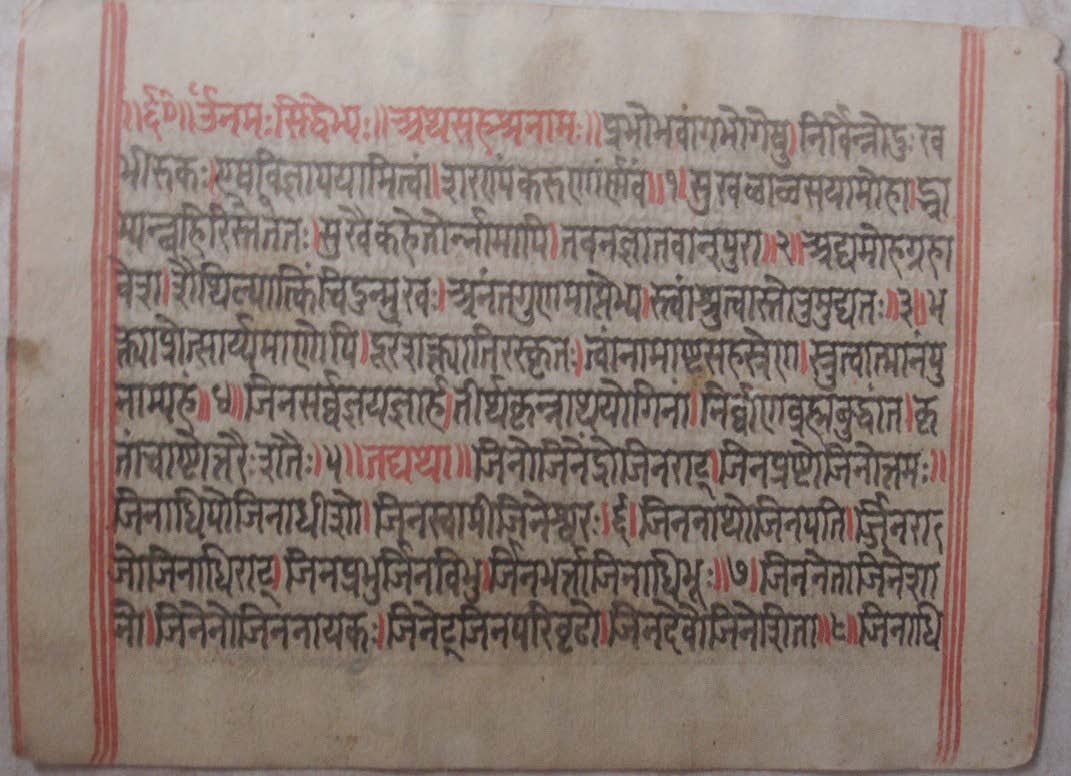 ॥६०॥ ॐनमः सिद्धेभ्यः॥ अथसहश्रनामः॥ प्रभोभवांगभोगेषु। निर्विन्नोदुःख
भीरुकः। एषविज्ञापयामित्वां। शरण्यंकरुणार्णवं॥१॥ सुखलालसयामोहा। द्भ्रा
म्यन्वहिरितस्ततः। सुखैकहेतोर्न्नामापि। तवनज्ञातवान्पुरा॥२॥ अद्यमोहग्रहा
वेश। शैथिल्यात्किंचिदुन्मुखः। अनंतगुणमाप्तेभ्य। स्त्वांश्रुत्वास्तोतुमुद्यतः॥३॥ भ
क्त्याप्रोत्सार्य्यमाणोपि। दूरशक्त्यातिरस्कृतः। त्वांनामाष्टसहस्त्रेण। स्तुत्वात्मानंपु
नाम्यहं॥४॥ जिनसर्व्वज्ञयज्ञार्ह। तीर्थकृन्नाथयोगिनां। निर्व्वाणब्रह्मबुद्धांत। कृ
तांचाष्टोत्तरैः शतैः। ५॥ तद्यथा॥ जिनोजिनेंद्रोजिनराट्। जिनप्रष्टोजिनोत्तमः॥
जिनाधिपोजिनाधीशो। जिनस्वामीजिनेश्वरः। ६। जिननाथोजिनपति। र्जिनरा
जोजिनाधिराट्। जिनप्रभुर्जिनविभु। र्जिनभर्त्ताजिनाधिभूः॥७॥ जिननेताजिनेशा
नो। जिनेनोजिननायकः। जिनेट्जिनपरिवृढो। जिनदेवोजिनेशिता॥८॥ जिनाधि